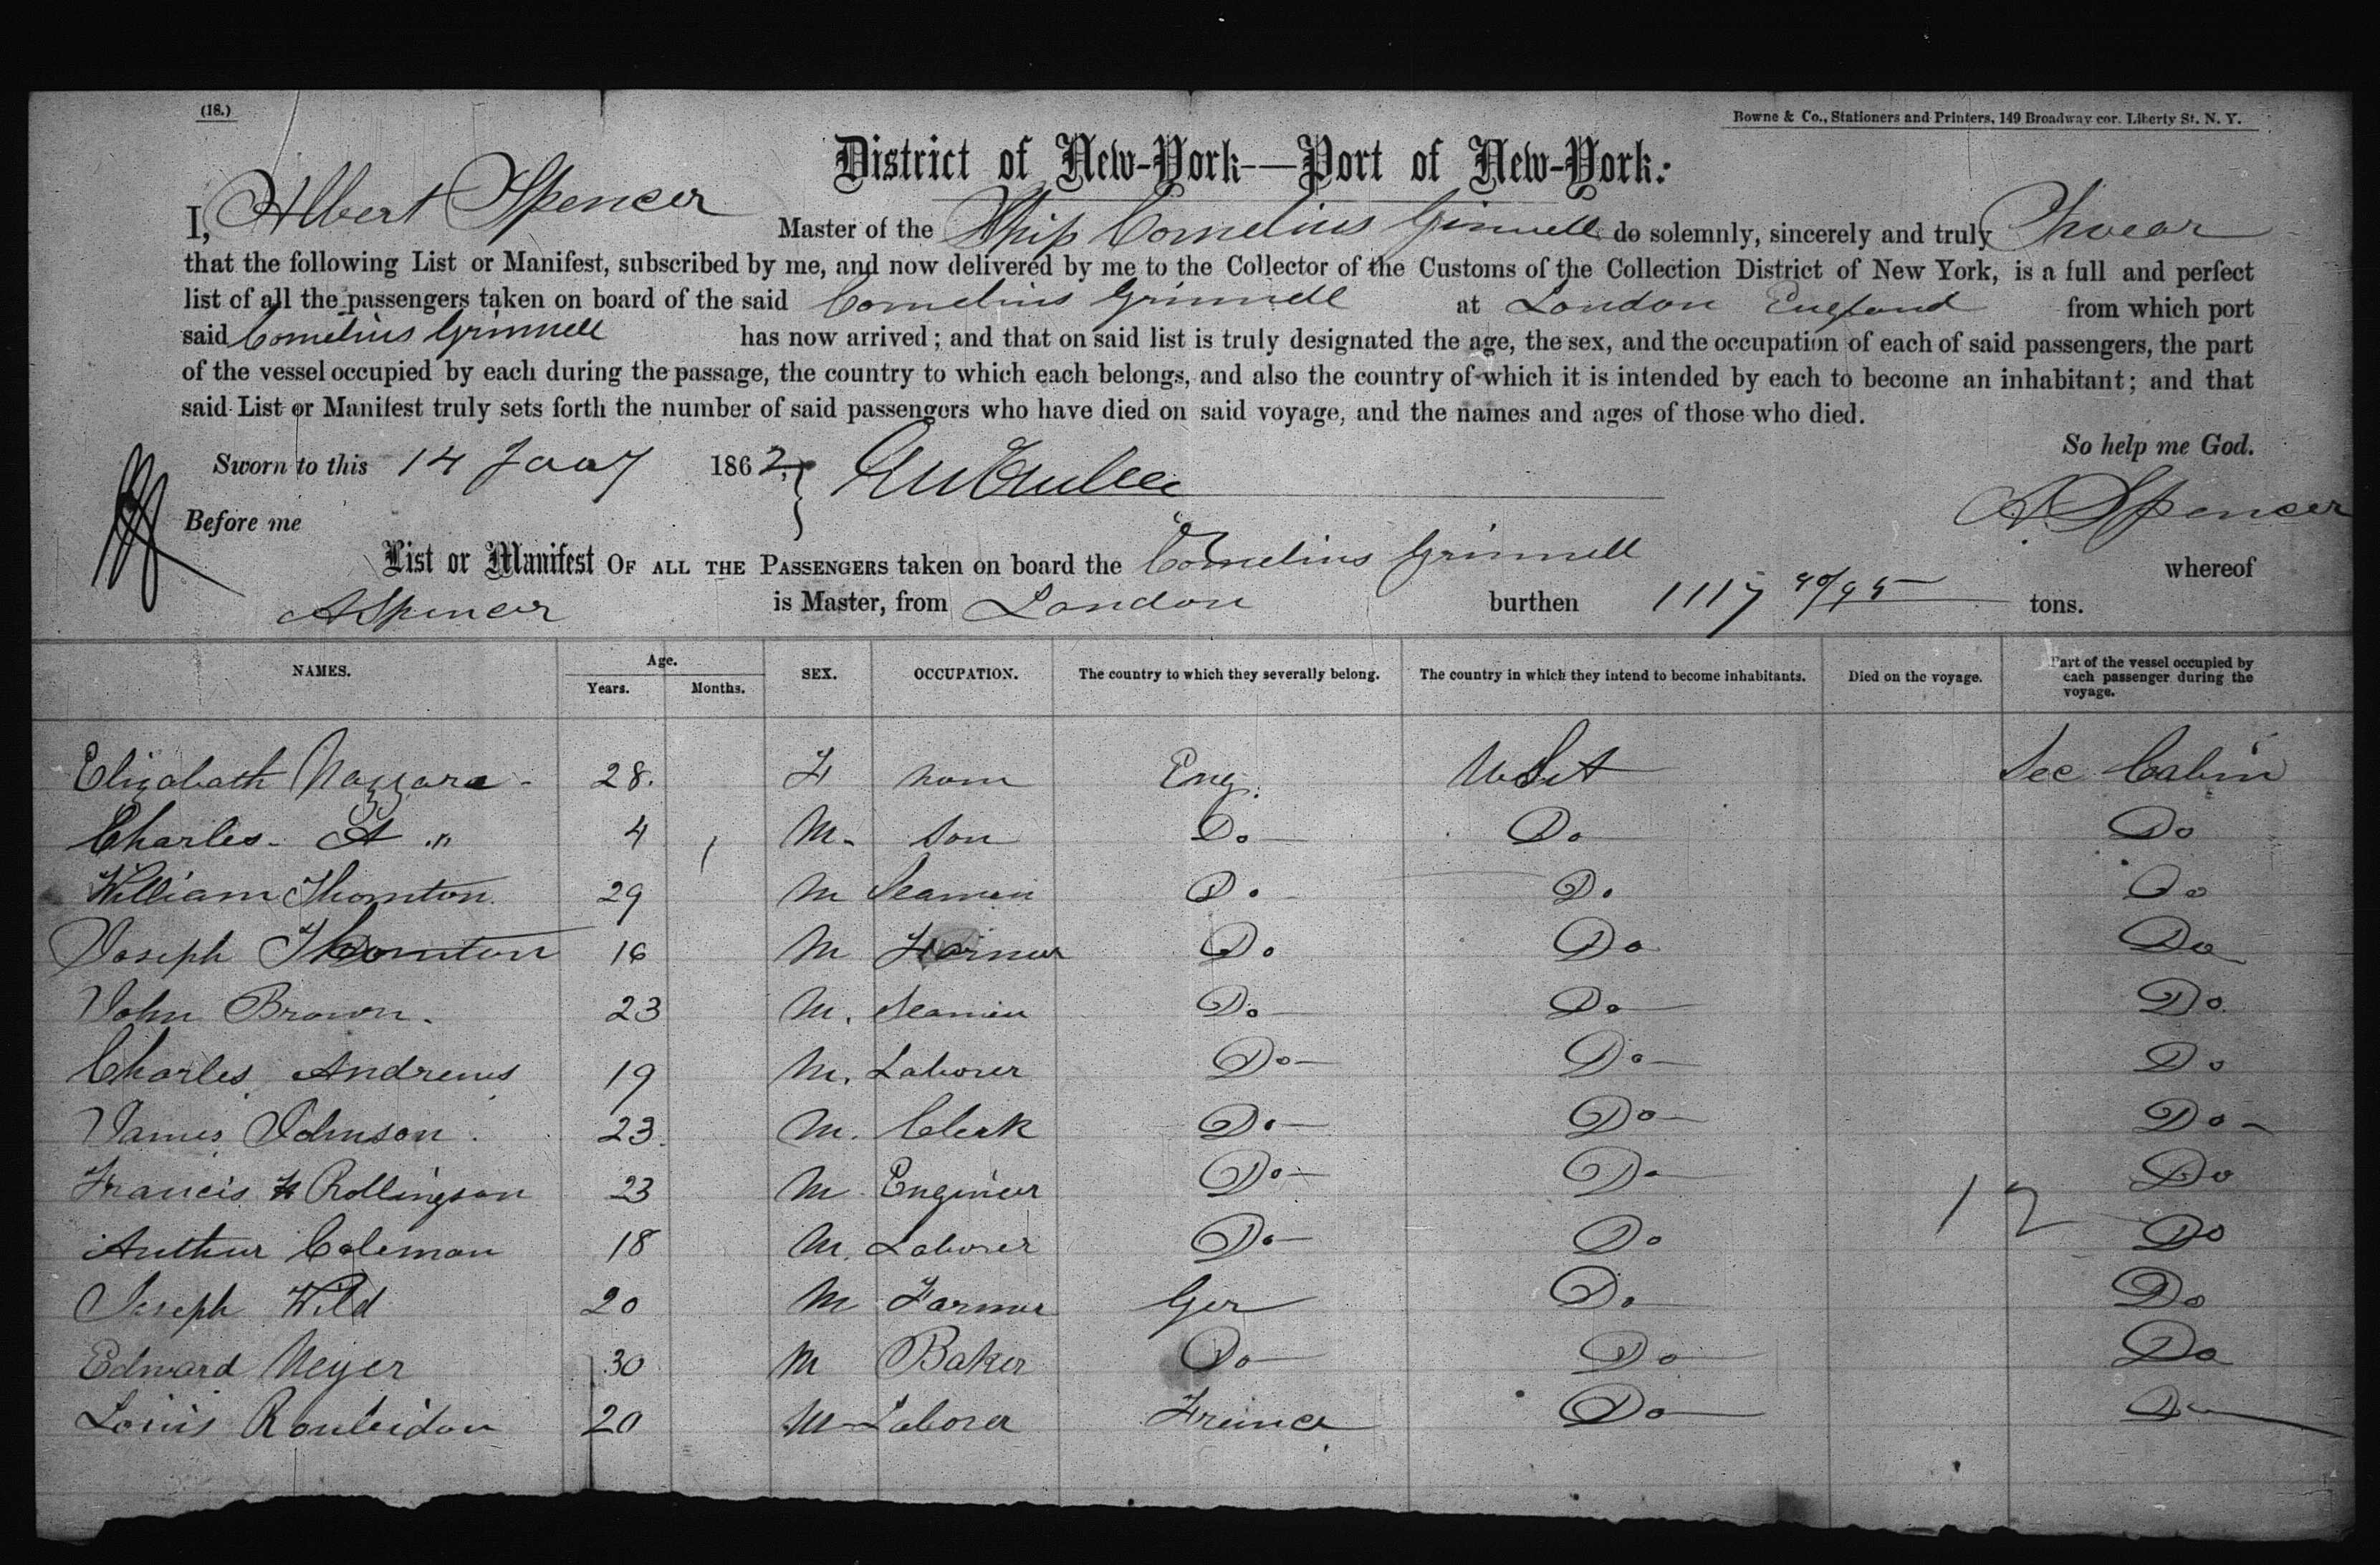 (18.)
Bowne & Co., Stationers and Printers, 149 Broadway cor. Liberty St. N. Y.
District of New-York—Port of New-York:
I, Albert Spencer Master of the Ship Cornelius Grinnell do solemnly, sincerely and truly Swear
that the following List or Manifest, subscribed by me, and now delivered by me to the Collector of the Customs of the Collection District of New York, is a full and perfect
list of all the passengers taken on board of the said Cornelius Grinnell at London England from which port
said Cornelius Grinnell has now arrived; and that on said list is truly designated the age, the sex, and the occupation of each of said passengers, the part
of the vessel occupied by each during the passage, the country to which each belongs, and also the country of which it is intended by each to become an inhabitant; and that
said List or Manifest truly sets forth the number of said passengers who have died on said voyage, and the names and ages of those who died.
So help me God.
Sworn to this 14 Jany 1862,
A. Spencer
Before me
List or Manifest OF ALL THE PASSENGERS taken on board the Cornelius Grinnell whereof
A Spencer is Master, from London burthen 1117 90/95 tons.
NAMES. Age. Years. Months. SEX. OCCUPATION. The country to which they severally belong. The country in which they intend to become inhabitants. Died on the voyage. Part of the vessel occupied by each passenger during the voyage.
Elizabath Nazzara 28. F Eng. Sec Cabin
Charles A " 4 M. Son Do Do Do
William Thornton 29 M Seaman Do Do Do
Joseph Thornton 16 M Farmer Do Do Do
John Brown. 23 M. Seaman Do Do Do
Charles Andrews 19 M. Laborer Do Do Do
James Johnson. 23. M. Clerk Do Do Do
Francis H Rollingson 23 M Engineer Do Do Do
Arthur Coleman 18 M. Laborer Do Do Do
Joseph Wild 20 M Farmer Ger Do Do
Edward Meyer 30 M Baker Do Do Do
Louis 20 M Laborer France Do Do
12